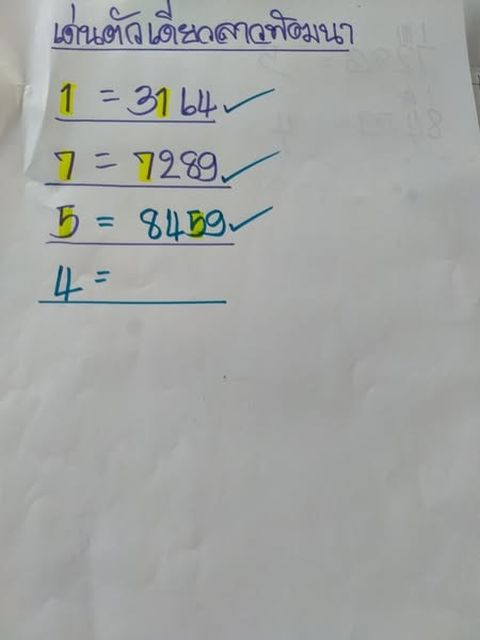 เด่นตัวเดียวลาวพัฒนา
1 = 3164 ✓
7 = 7289 ✓
5 = 8459 ✓
4 =